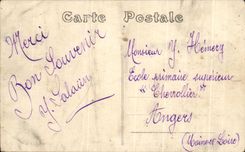 Carte Postale
Merci
Bon Souvenir
Y.
Monsieur Y. Hemery
École primaire supérieure
"Chevrollier"
Angers
(Maine & Loire)